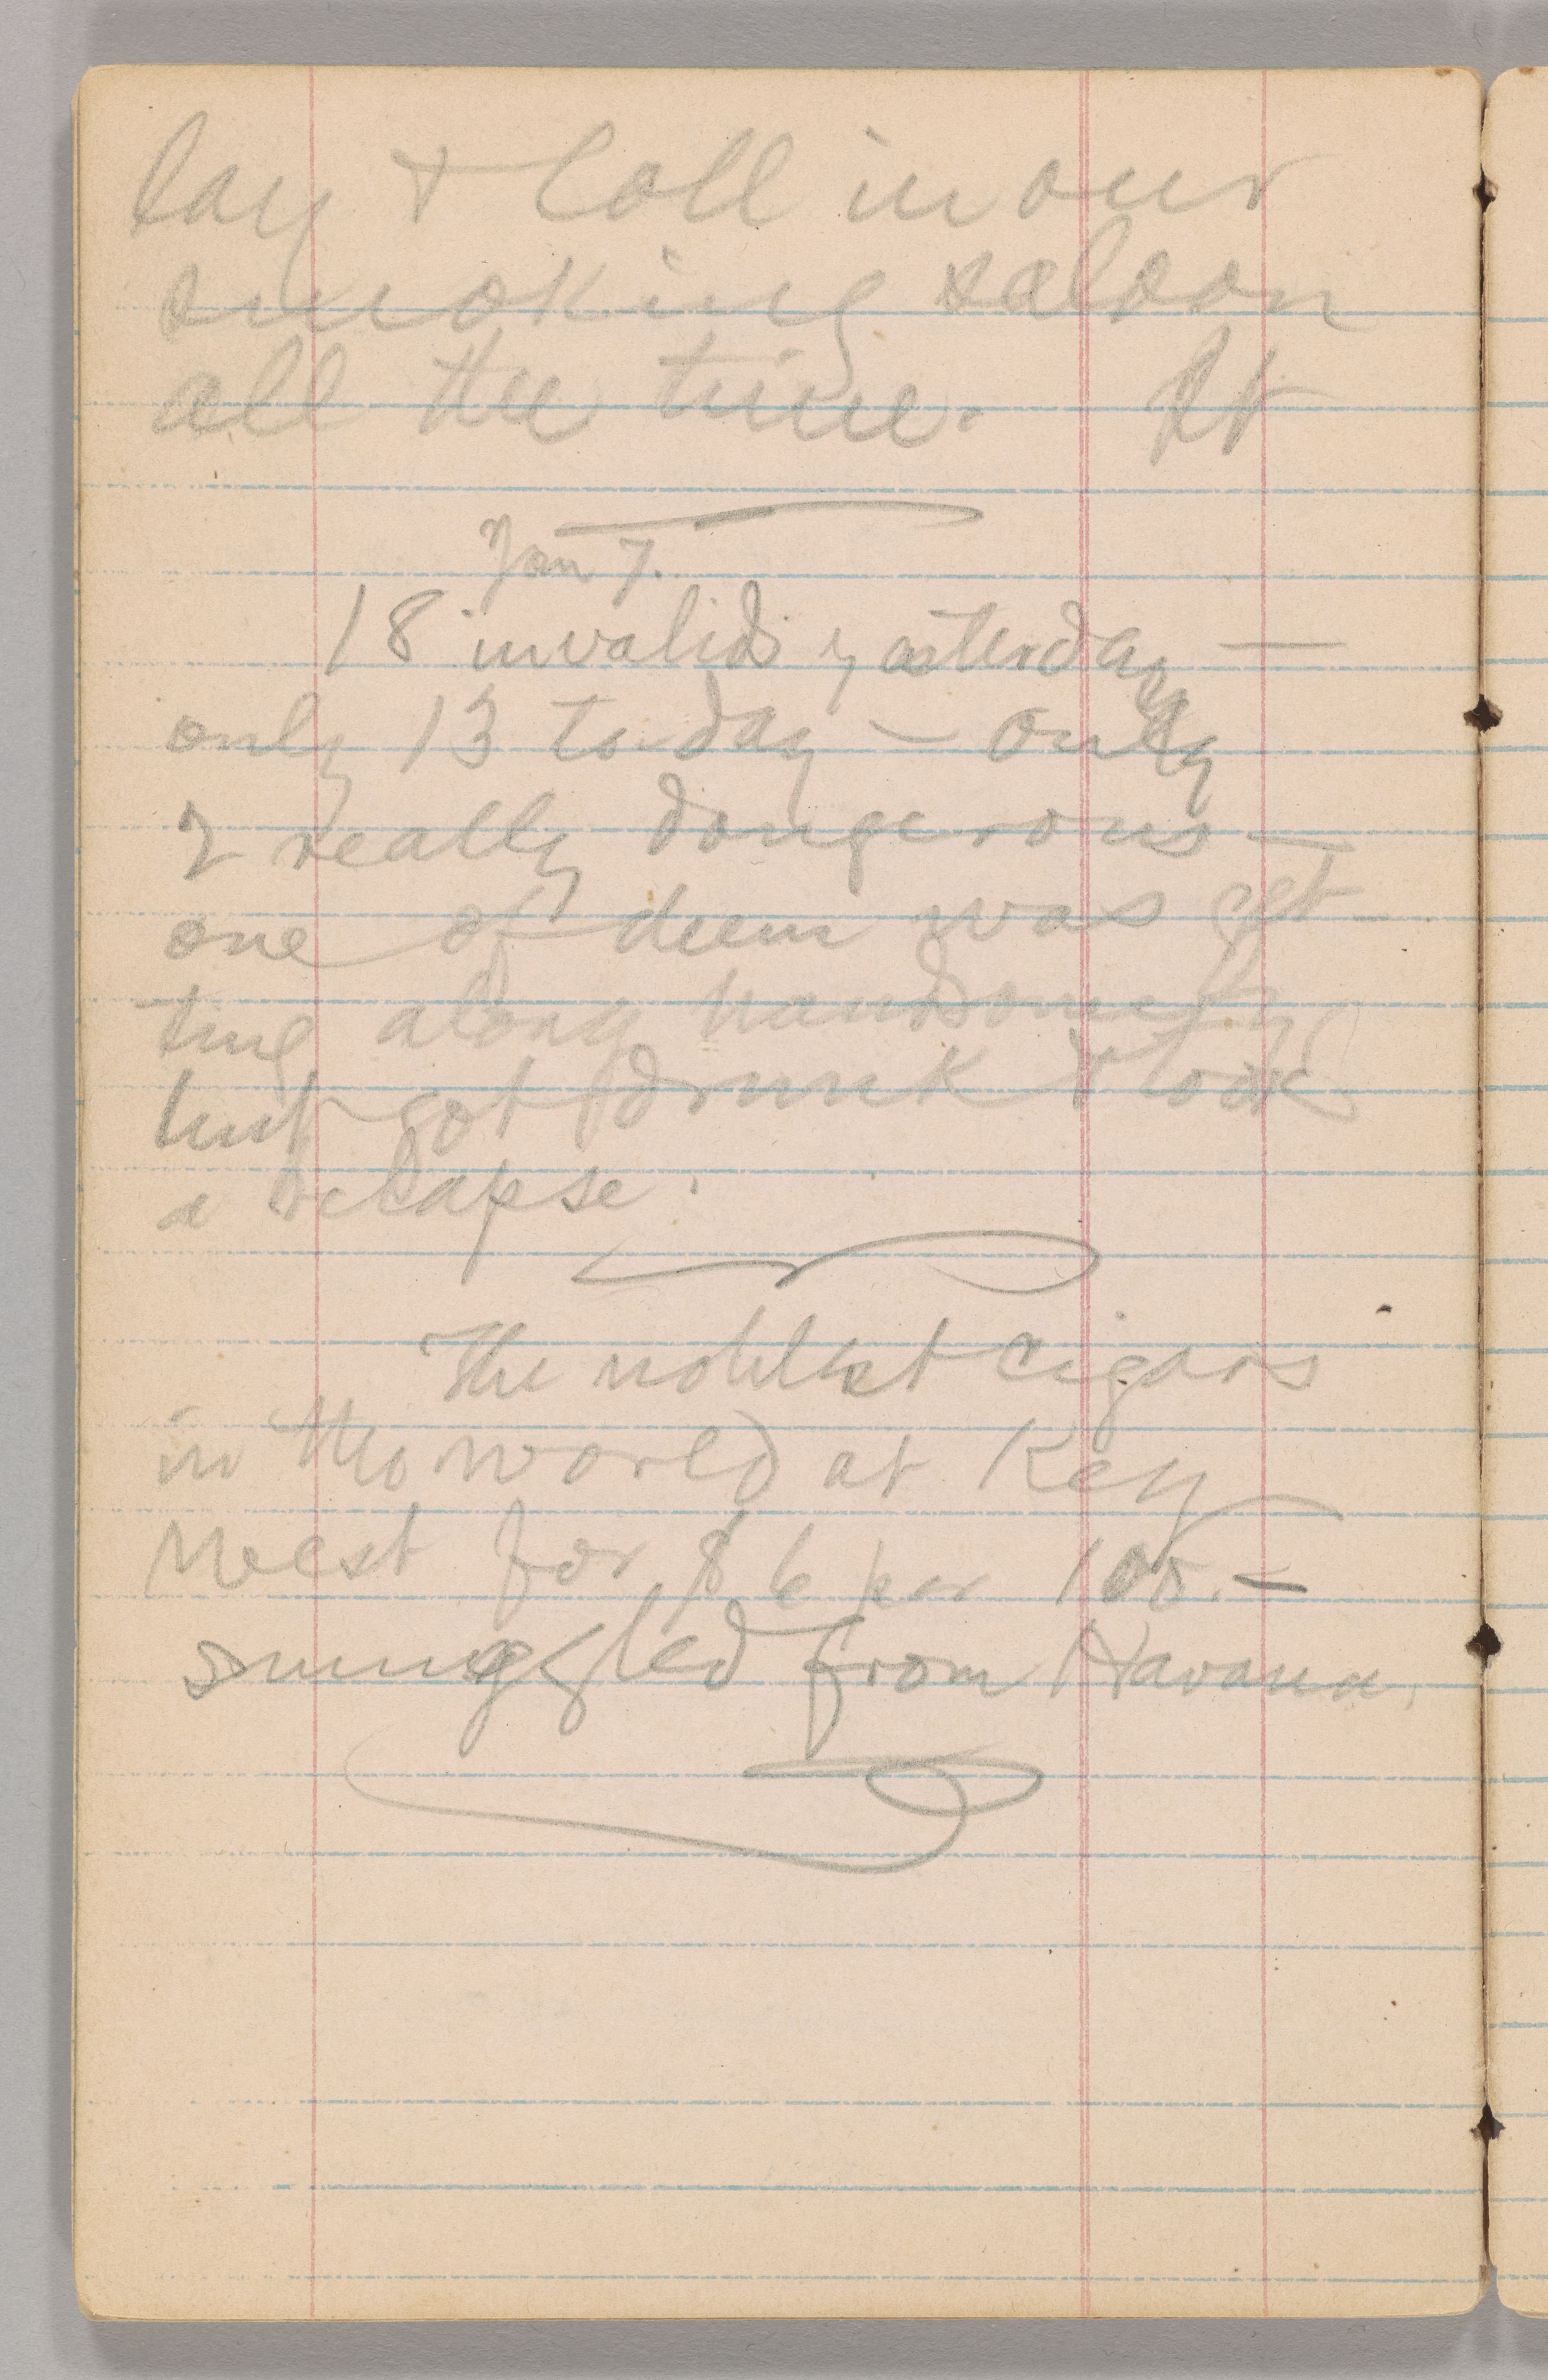 lay & loll in our
smoking saloon
all the time. It
Jan 7.
18 invalids yesterday —
only 13 to-day — only
2 really dangerous —
one of them was get-
ting along handsomely
but got drunk & took
a relapse.
The noblest cigars
in the world at Key
West for $6 per 100. —
smuggled from Havana.